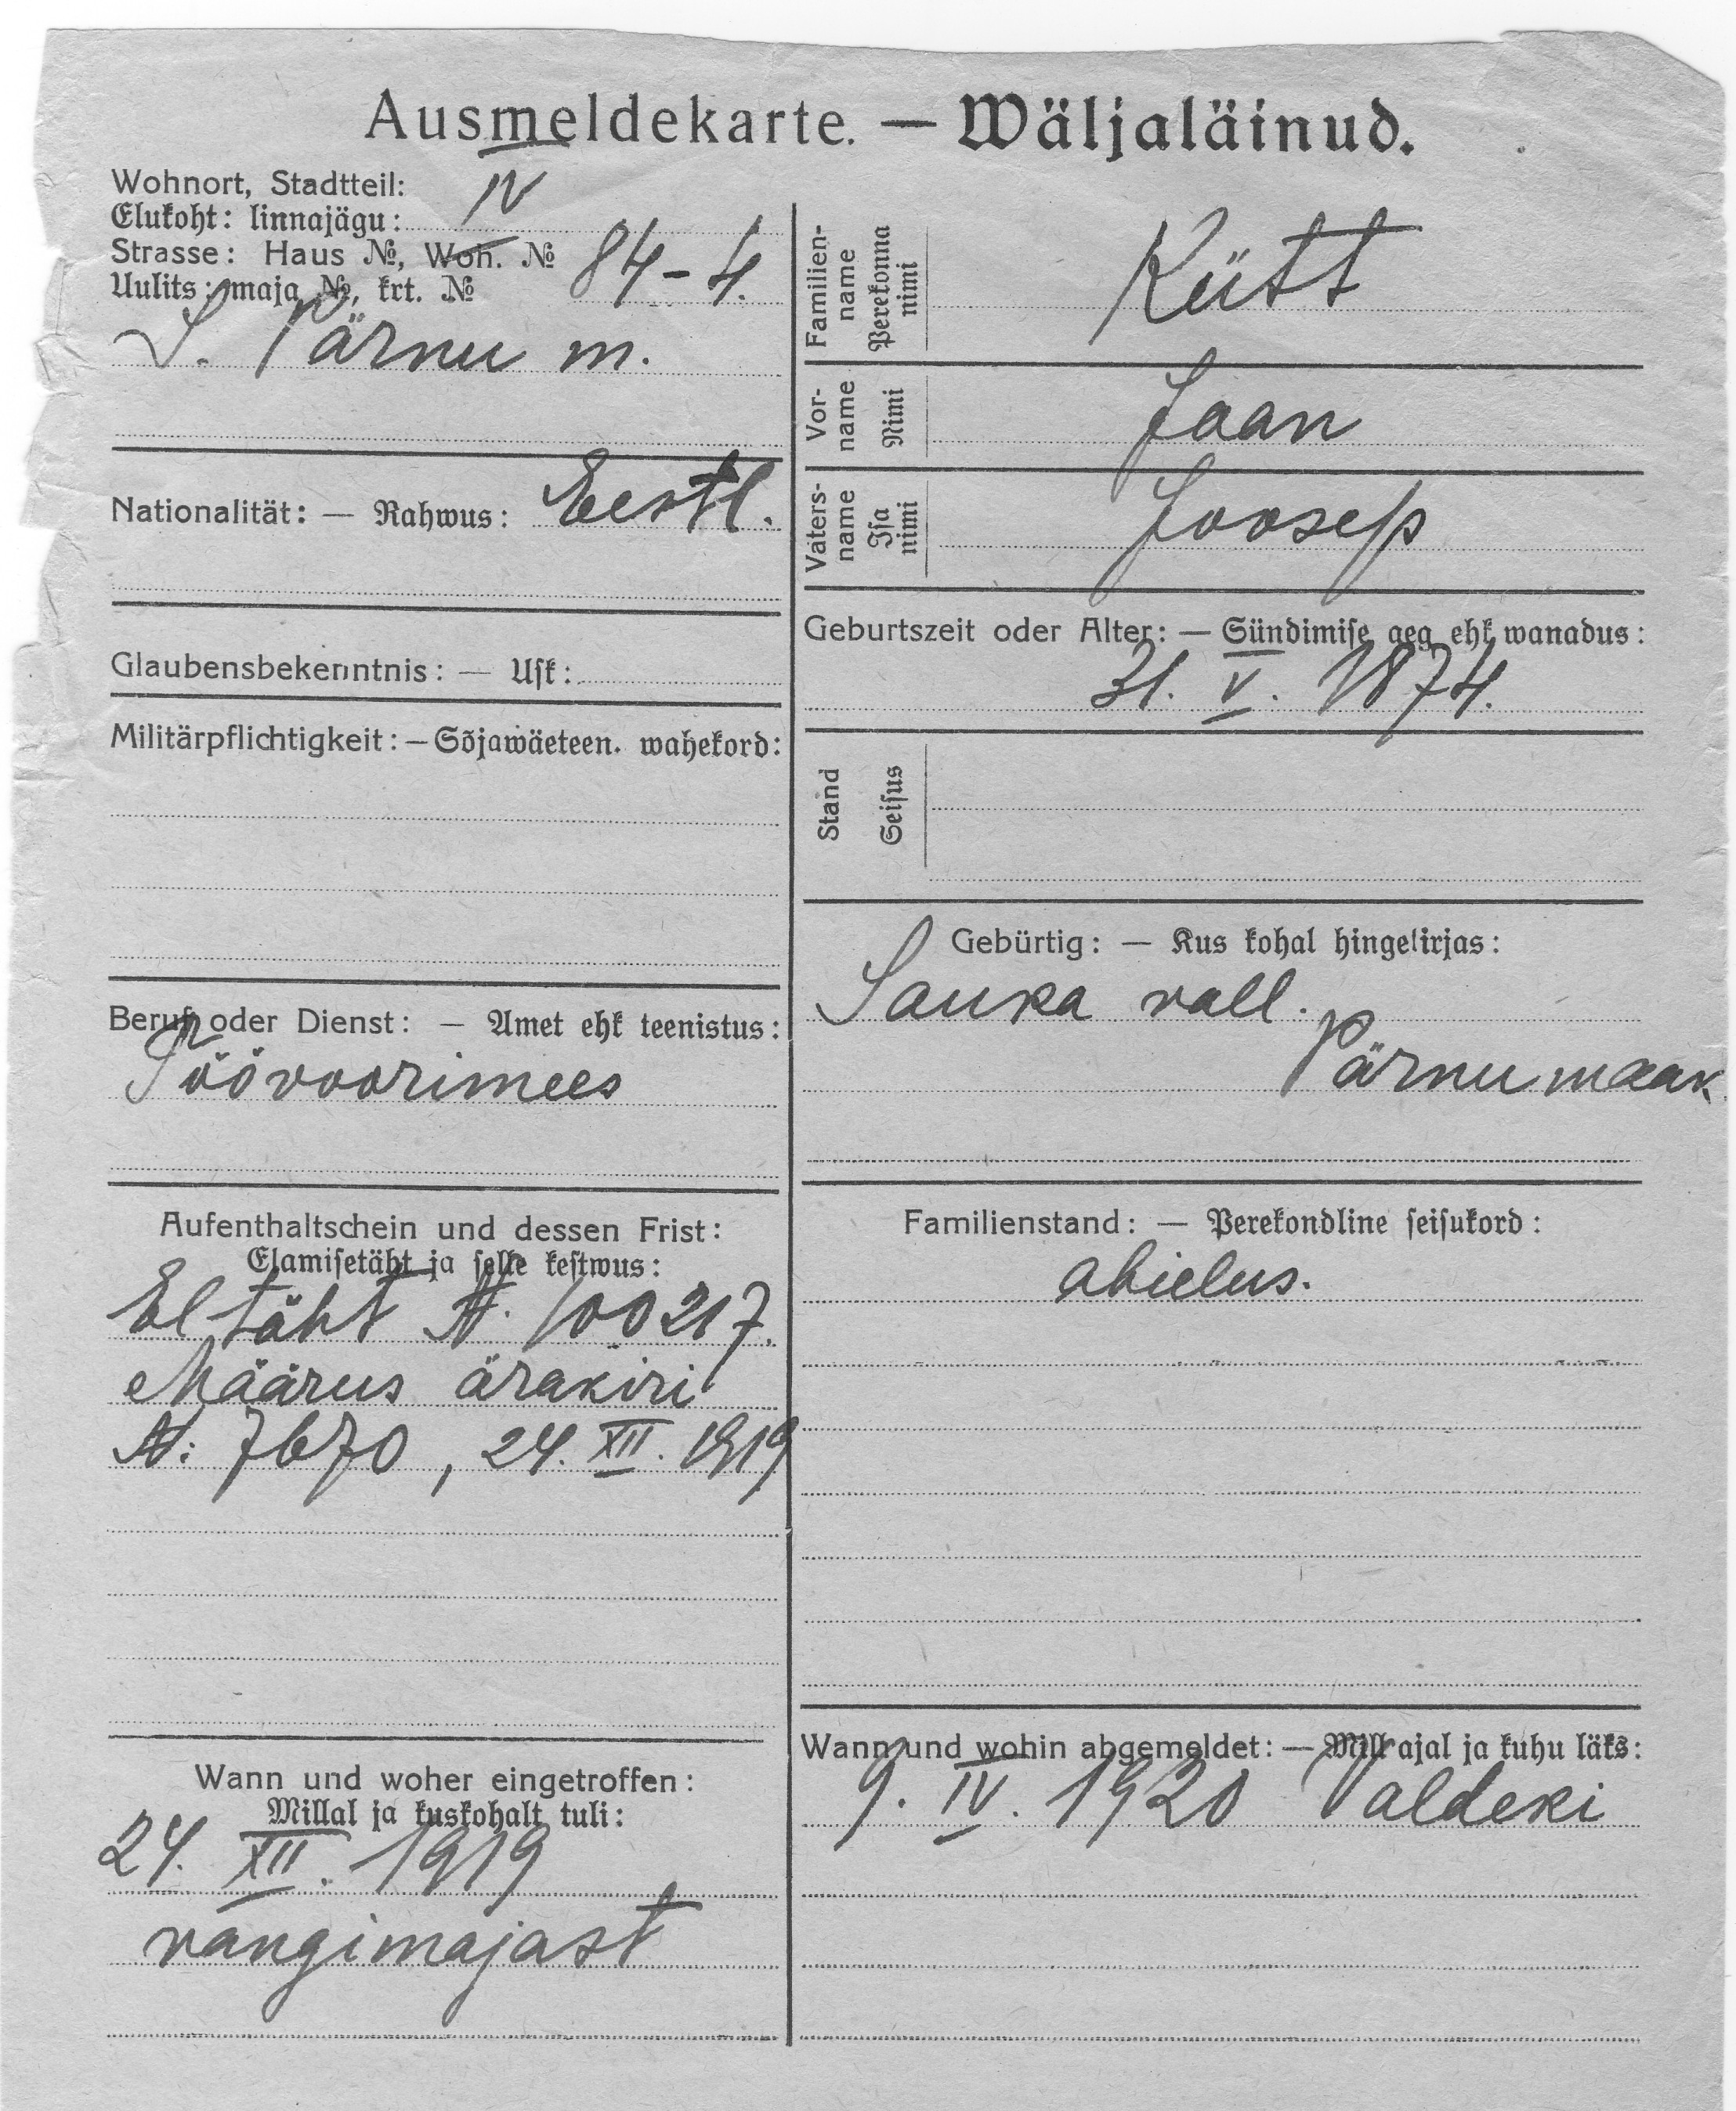 Ausmeldekarte. — Wäljaläinud.
Wohnort, Stadtteil: IV
Elukoht: linnajägu:
Strasse: Haus №, Woh. № 84-4.
Uulits: maja №, krt. №
S. Pärnu m.
Nationalität: — Rahwus: Eestl.
Glaubensbekenntnis: — Usk:
Militärpflichtigkeit: — Sõjawäeteen. wahekord:
Beruf oder Dienst: — Amet ehk teenistus:
Töövoorimees
Aufenthaltschein und dessen Frist:
Elamisetäht ja selle kestwus:
El täht N. 100217.
Määrus ärakiri
N: 7670, 24. XII. 1919
Wann und woher eingetroffen:
Millal ja kuskohalt tuli:
24. XII. 1919
vangimajast
Familien-
name
Perekonna
nimi
Kütt
Vor-
name
Nimi
Jaan
Vaters-
name
Isa
nimi
Joosep
Geburtszeit oder Alter: — Sündimise aeg ehk wanadus:
31. V. 1874.
Stand
Seisus
Gebürtig: — Kus kohal hingekirjas:
Sauka vall.
Pärnu maak.
Familienstand: — Perekondline seisukord:
abielus.
Wann und wohin abgemeldet: — Mill ajal ja kuhu läks:
9. IV. 1920 Valdeki